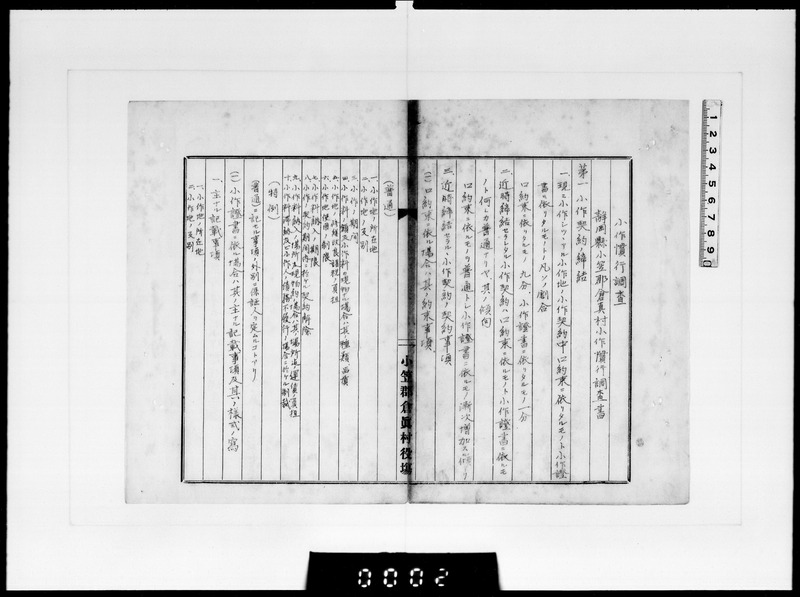 小作慣行調査
静岡縣小笠郡倉真村小作慣行調査書
第一 小作契約締結
一、現ニ小作シツヽアル小作地ノ小作契約中口約束ニ依リタルモノト小作證
書ニ依リタルモノトノ凡ソノ割合
口約束ニ依リタルモノ 九分 小作證書ニ依リタルモノ 一分
二、近時締結セラレタル小作契約ハ口約束ニ依ルモノト小作證書ニ依ルモ
ノト何レカ普通ナリヤ、其ノ傾向
口約束ニ依ルモノヲ普通トシ小作證書ニ依ルモノ漸次増加スル傾アリ
三、近時締結セラルヽ小作契約ノ契約事項
(イ)口約束ニ依ル場合ハ其ノ約束事項
(普通)
一、小作地ノ所在地
二、小作地ノ反別
三、小作期間
四、小作料ノ額及小作料ノ現物ナル場合ハ其種類品質
五、小作地ノ
六、小作地使用ノ制限
七、小作料納入ノ期限
八、小作契約期間ニ於ケル契約解除
九、小作料納入ノ場所及現物ノ場合ハ其ノ場所迄ノ運賃負担
十、小作料滞納及ビ小作人債務不履行ノ場合ニ於ケル制裁
(特例)
普通ニ記セル事項ノ外別ニ保証人ヲ定ムルコトアリ
(ロ)小作證書ニ依ル場合ハ其ノ主ナル記載事項及其ノ様式ノ寫
一、主ナル記載事項
一、小作地ノ所在地
二、小作地ノ反別
小笠郡倉眞村役場
1 2 3 4 5 6 7 8 9
0002